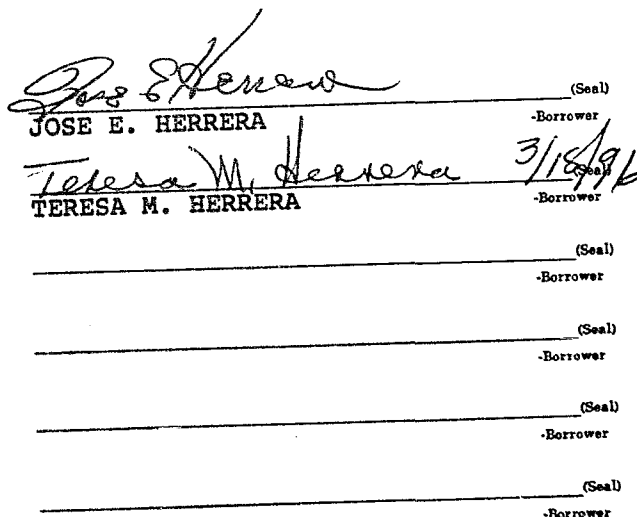 Jose E Herrera (Seal)
JOSE E. HERRERA -Borrower
Teresa M. Herrera 3/18/96 (Seal)
TERESA M. HERRERA -Borrower
(Seal)
-Borrower
(Seal)
-Borrower
(Seal)
-Borrower
(Seal)
-Borrower